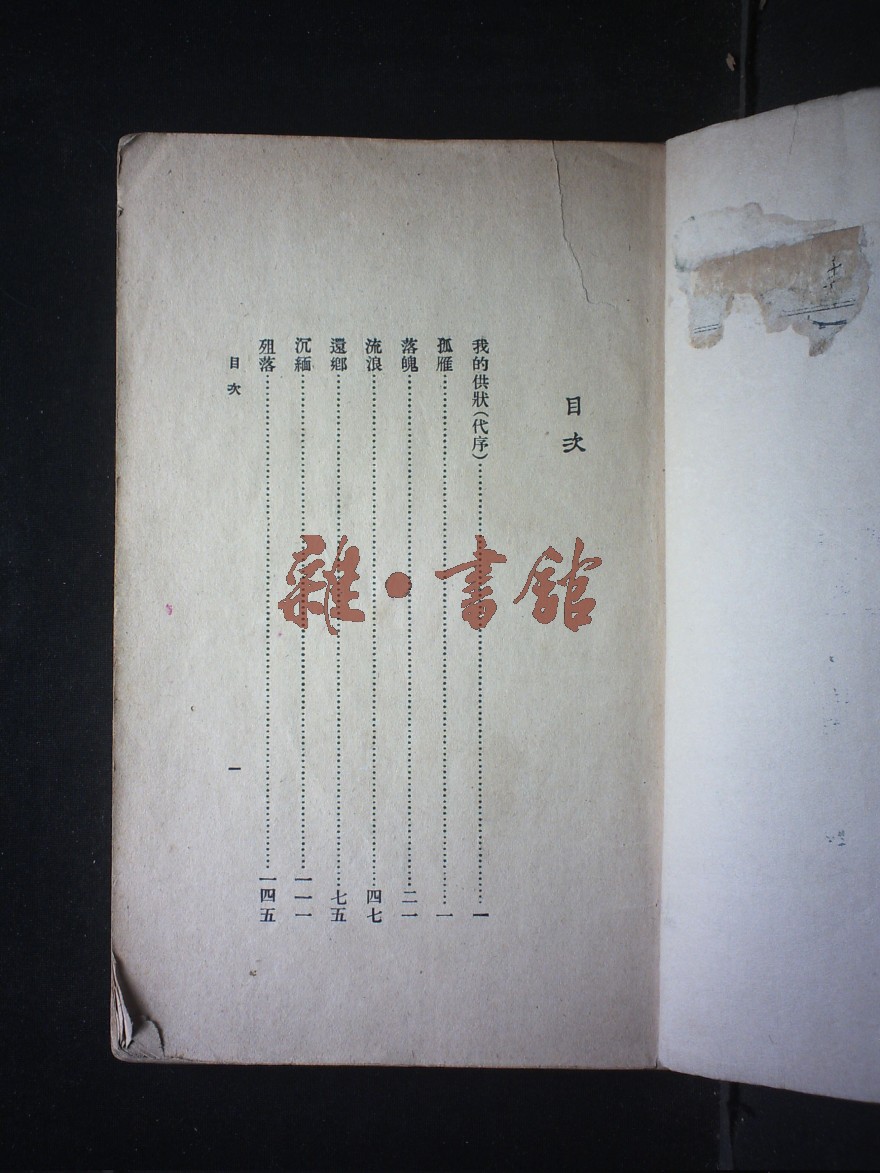 目次
我的供狀（代序）……一
孤雁……一
落魄……二一
流浪……四七
還鄉……七五
沉緬……一一一
殂落……一四五
目次 一
雜·書館